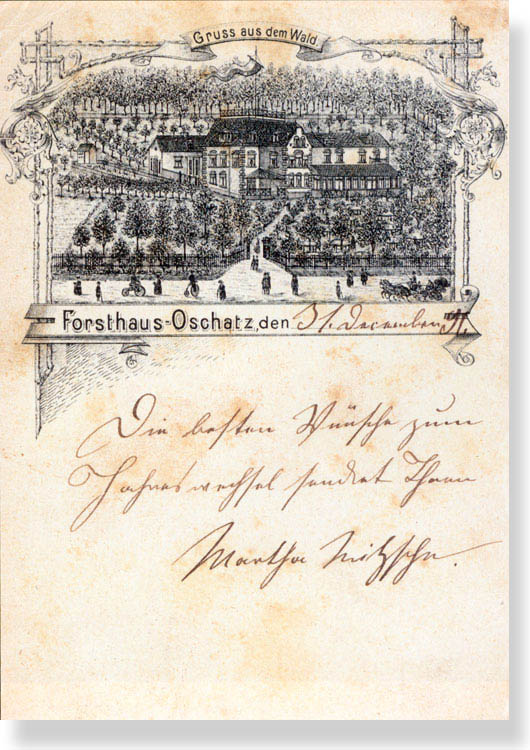 Gruss aus dem Wald
Forsthaus-Oschatz, den 31. December
Die besten Wünsche zum
Jahreswechsel sendet Ihnen
Martha Nitzsche.